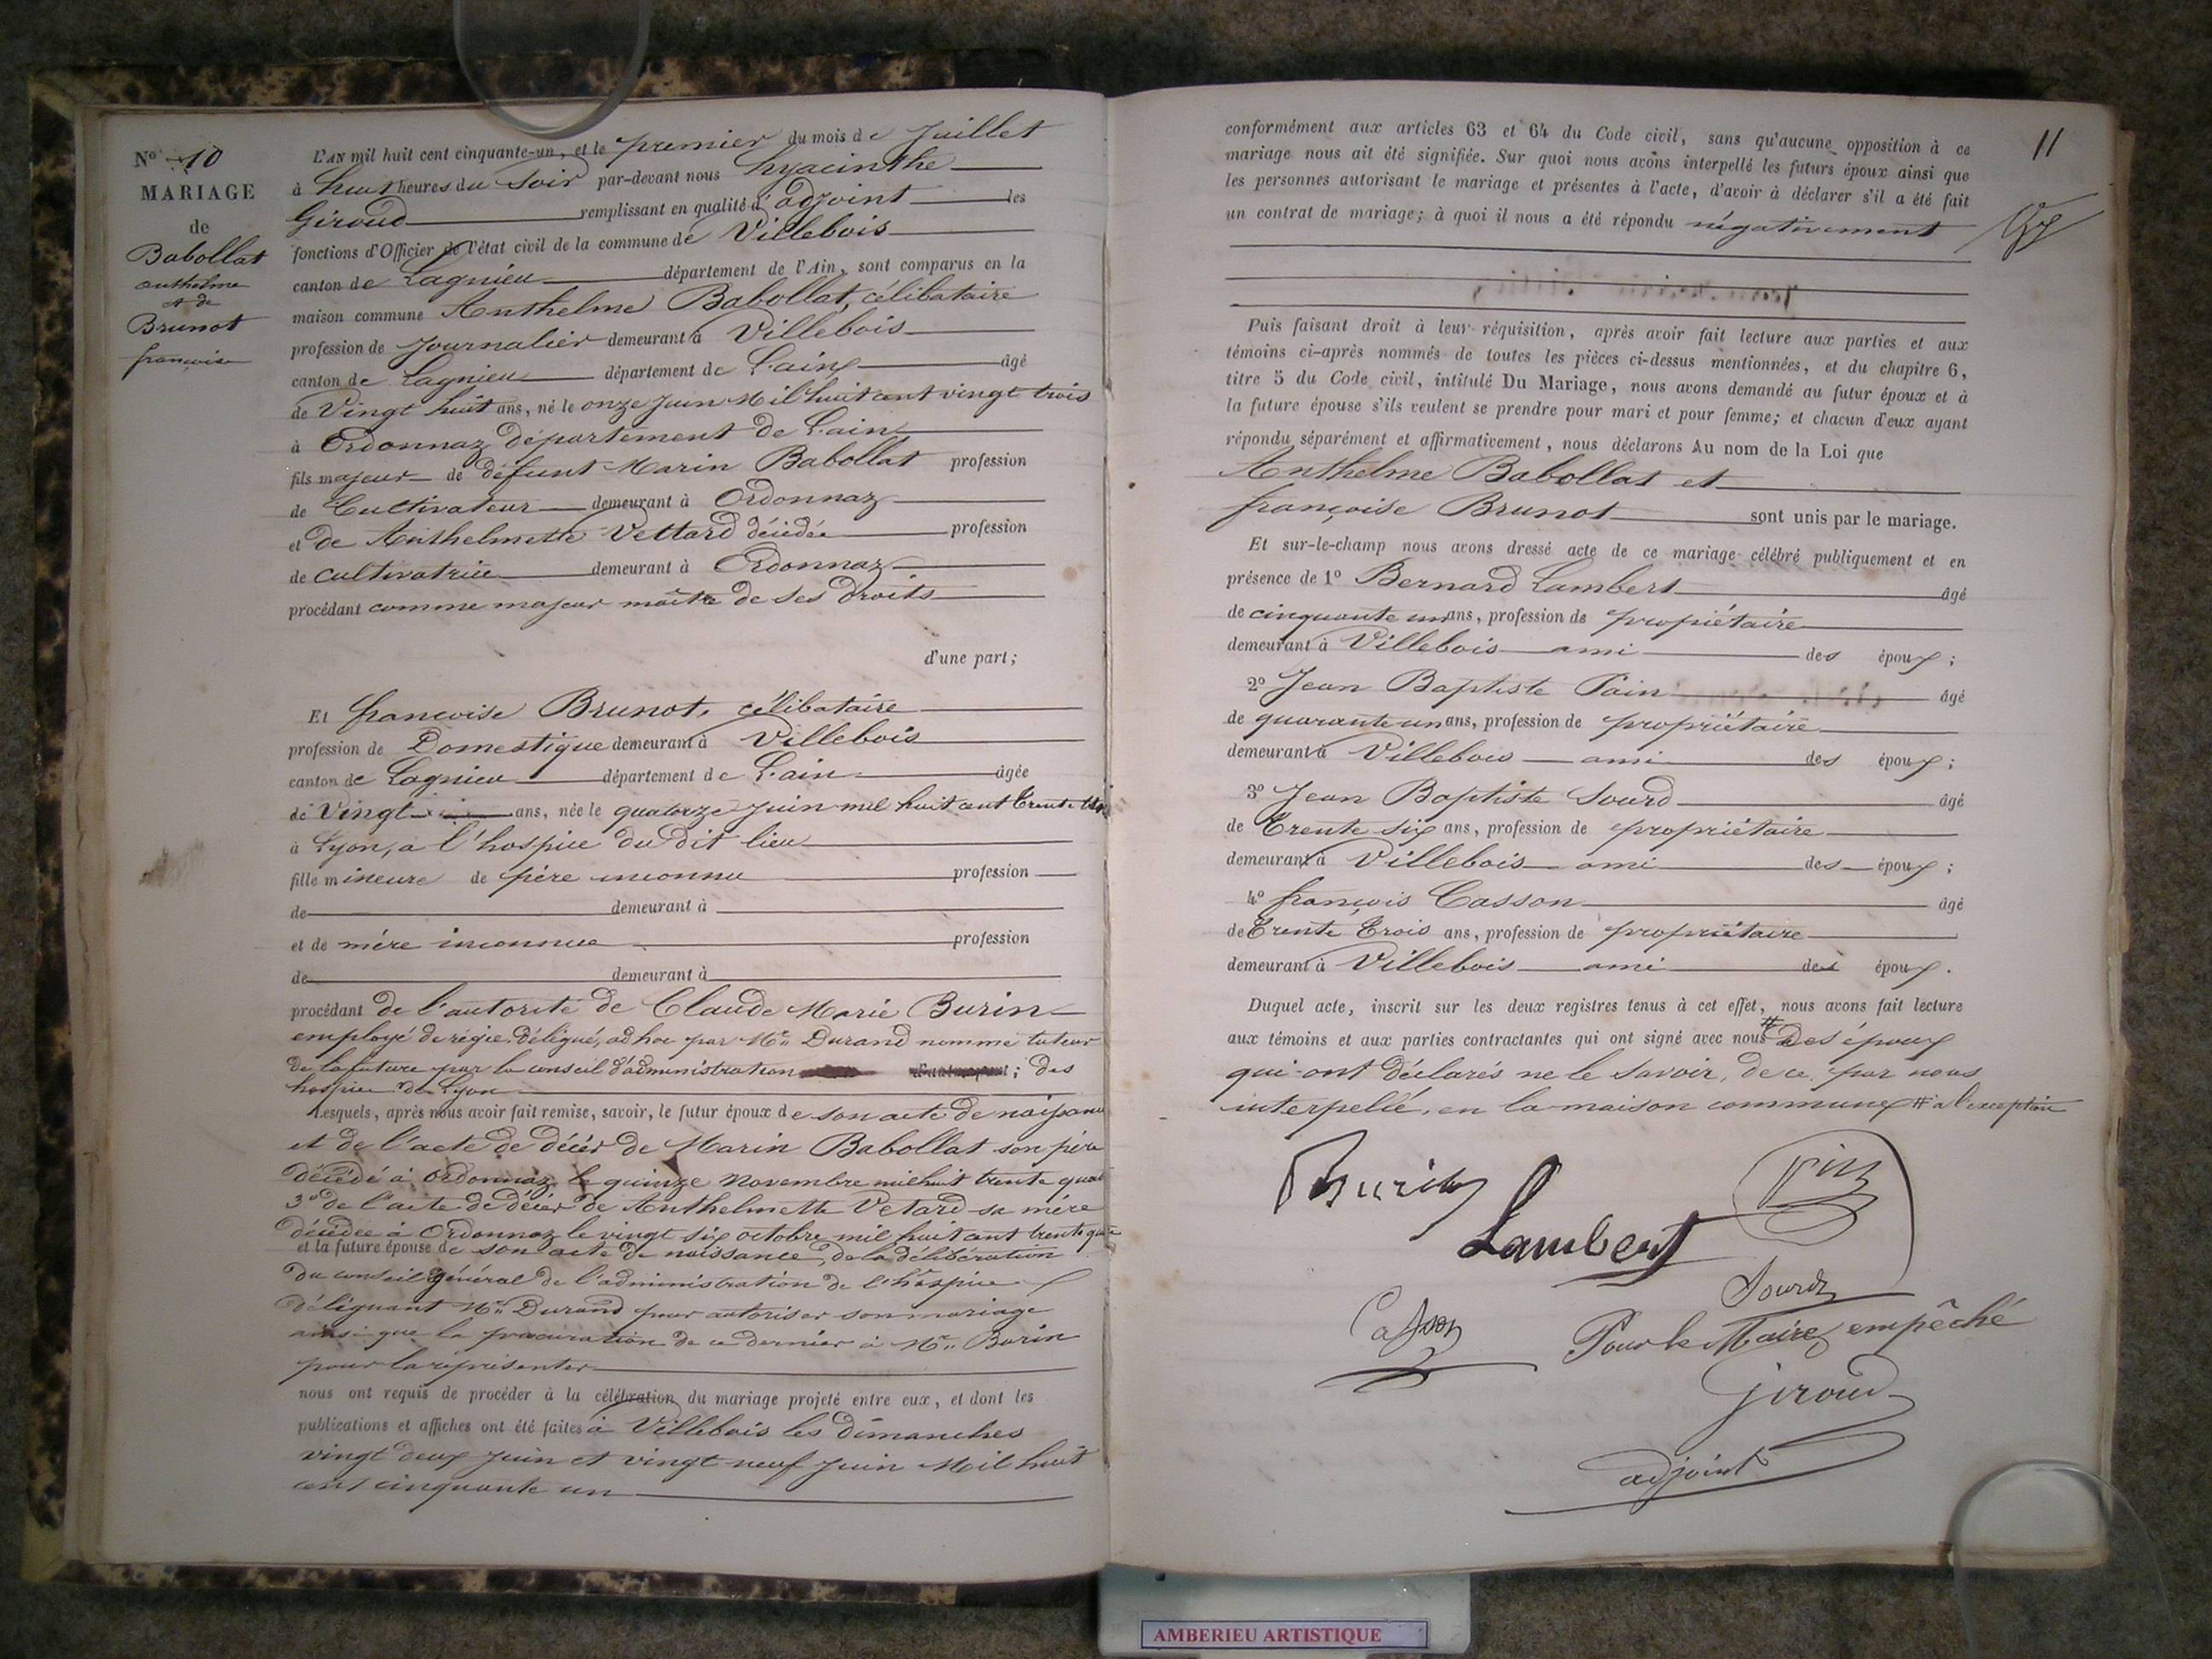 No 10
MARIAGE
de
Babollat
anthelme
et de
Brunot
françoise
L'AN mil huit cent cinquante-un, et le premier du mois de Juillet
à huit heures du Soir par-devant nous hyacinthe
Giroud remplissant en qualité d'adjoint les
fonctions d'Officier de l'état civil de la commune de Villebois
canton de Lagnieu département de l'Ain, sont comparus en la
maison commune Anthelme Babollat, célibataire
profession de Journalier demeurant à Villebois
canton de Lagnieu département de L'ain âgé
de Vingt huit ans, né le onze Juin Mil huit cent vingt trois
à Ordonnaz département de L'ain
fils majeur de défunt Marin Babollat profession
de Cultivateur demeurant à Ordonnaz
et de Anthelmette Vettard décédée profession
de cultivatrice demeurant à Ordonnaz
procédant comme majeur maître de ses droits
d'une part;
Et françoise Brunot, célibataire
profession de Domestique demeurant à Villebois
canton de Lagnieu département de L'ain âgée
de Vingt ans, née le quatorze Juin mil huit cent trente
à Lyon, a l'hospice du dit lieu
fille mineure de père inconnu profession
de demeurant à
et de mère inconnue profession
de demeurant à
procédant de l'autorité de Claude Marie Burin
employé de régie, délégué, ad hoc par Mr. Durand nommé tuteur
de la future par le conseil d'administration ; des
hospice de Lyon
Lesquels, après nous avoir fait remise, savoir, le futur époux de son acte de naissance
et de l'acte de décès de Marin Babollat son père
décédé à Ordonnaz le quinze Novembre mil huit trente
3o de l'acte de décès de Anthelmette Vetard sa mère
décédée à Ordonnaz le vingt six octobre mil huit cent trente
et la future épouse de son acte de naissance, de la délibération
du conseil général de l'administration de l'hospice
déléguant Mr. Durand pour autoriser son mariage
ainsi que la procuration de ce dernier à Mr. Burin
pour la réprésenter
nous ont requis de procéder à la célébration du mariage projeté entre eux, et dont les
publications et affiches ont été faites à Villebois les dimanches
vingt deux Juin et vingt neuf Juin Mil huit
cent cinquante un
11
conformément aux articles 63 et 64 du Code civil, sans qu'aucune opposition à ce
mariage nous ait été signifiée. Sur quoi nous avons interpellé les futurs époux ainsi que
les personnes autorisant le mariage et présentes à l'acte, d'avoir à déclarer s'il a été fait
un contrat de mariage; à quoi il nous a été répondu négativement
Puis faisant droit à leur réquisition, après avoir fait lecture aux parties et aux
témoins ci-après nommés de toutes les pièces ci-dessus mentionnées, et du chapitre 6,
titre 5 du Code civil, intitulé Du Mariage, nous avons demandé au futur époux et à
la future épouse s'ils veulent se prendre pour mari et pour femme; et chacun d'eux ayant
répondu séparément et affirmativement, nous déclarons Au nom de la Loi que
Anthelme Babollat et
françoise Brunot sont unis par le mariage.
Et sur-le-champ nous avons dressé acte de ce mariage célébré publiquement et en
présence de 1o Bernard Lambert âgé
de cinquante un ans, profession de propriétaire
demeurant à Villebois ami des époux;
2o Jean Baptiste Pain âgé
de quarante un ans, profession de propriétaire
demeurant à Villebois ami des époux;
3o Jean Baptiste Sourd âgé
de Trente six ans, profession de propriétaire
demeurant à Villebois ami des époux;
4o françois Casson âgé
de Trente Trois ans, profession de propriétaire
demeurant à Villebois ami des époux.
Duquel acte, inscrit sur les deux registres tenus à cet effet, nous avons fait lecture
aux témoins et aux parties contractantes qui ont signé avec nous # des époux
qui ont déclarés ne le savoir, de ce par nous
interpellé, en la maison commune # a l'exception
Burin
Lambert
Sourd
Casson
Pour le Maire empêché
Giroud
adjoint
AMBERIEU ARTISTIQUE